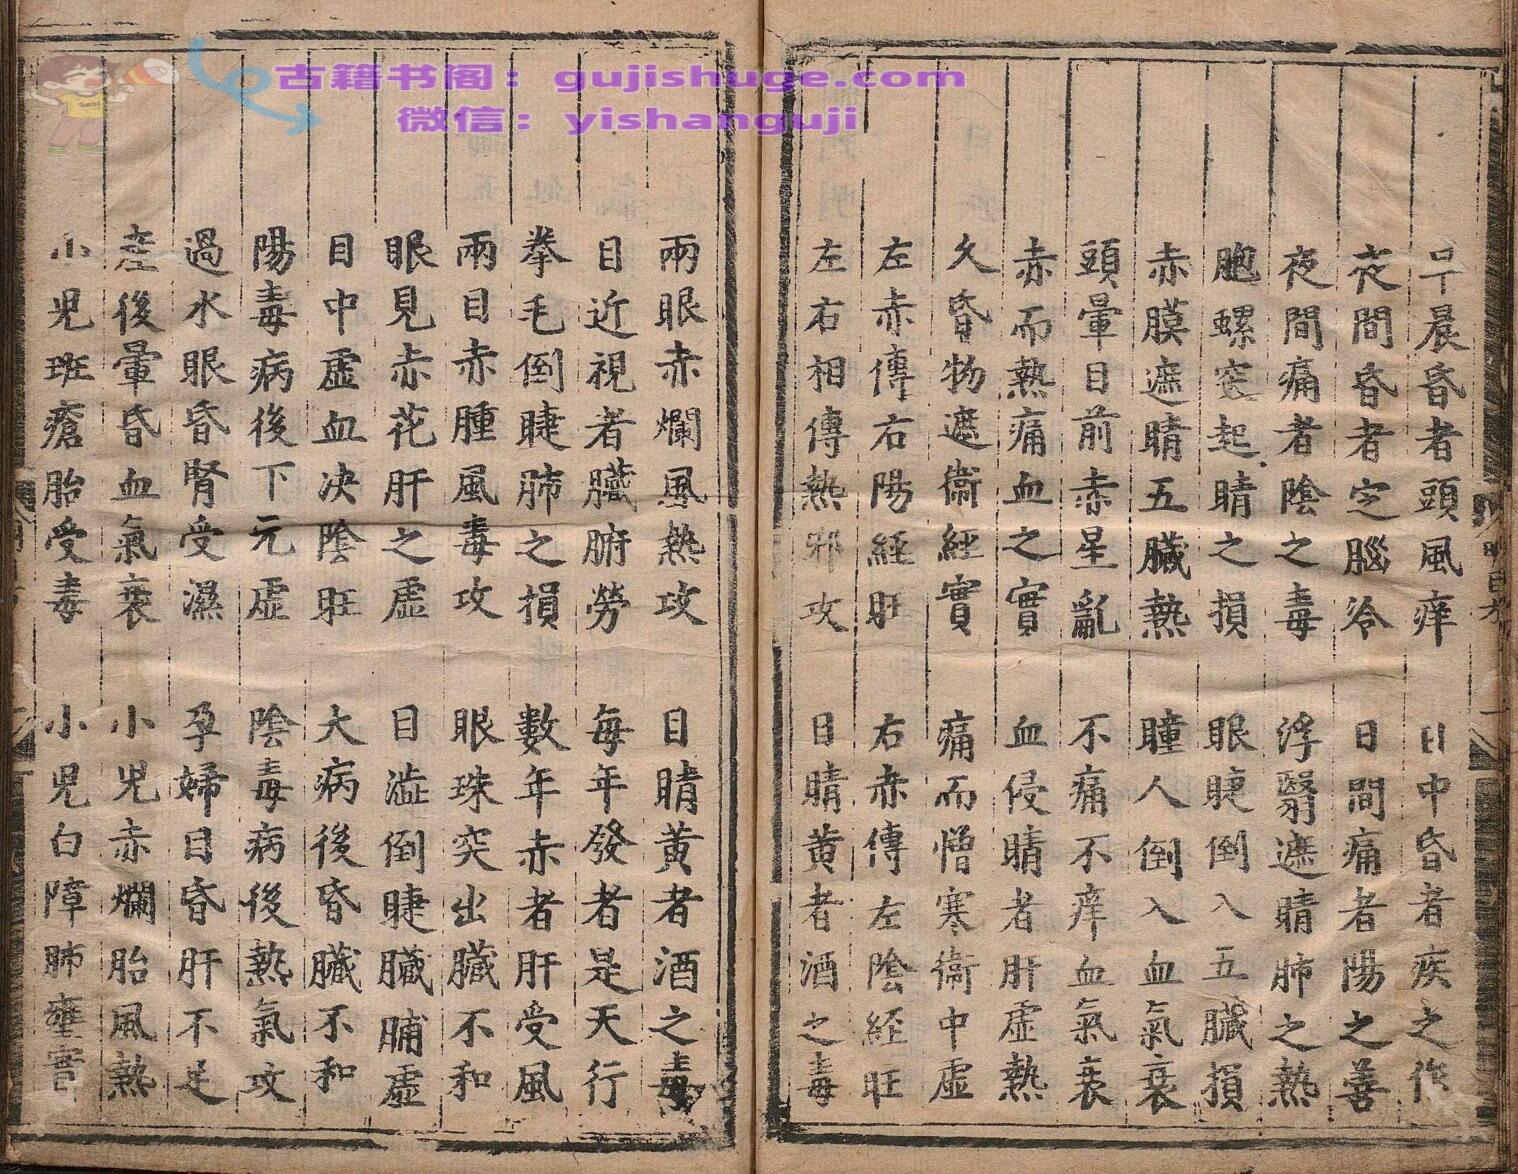 古籍书阁：gujishuge.com
微信：yishanguji
早晨昏者頭風痒　日中昏者疾之作
夜間昏者定腦冷　日間痛者陽之善
夜間痛者陰之毒　浮翳遮睛肺之熱
胞螺突起睛之損　眼睫倒入五臟損
赤膜遮睛五臟熱　瞳人倒入血氣衰
頭暈目前赤星亂　不痛不痒血氣衰
赤而熱痛血之實　血侵睛者肝虛熱
久昏物遮衞經實　痛而憎寒衞中虛
左赤傳右陽経旺　右赤傳左陰経旺
左右相傳熱邪攻　目睛黄者酒之毒
兩眼赤爛風熱攻　目睛黄者酒之毒
目近視者臟腑勞　每年發者是天行
拳毛倒睫肺之損　數年赤者肝受風
兩目赤腫風毒攻　眼珠突出臟不和
眼見赤花肝之虛　目澁倒睫臟脯虛
目中虛血决陰旺　大病後昏臟不和
陽毒病後下元虛　陰毒病後熱氣攻
過水眼昏腎受濕　孕婦目昏肝不足
産後暈昏血氣衰　小児赤爛胎風熱
小児斑瘡胎受毒　小児白障肺壅實